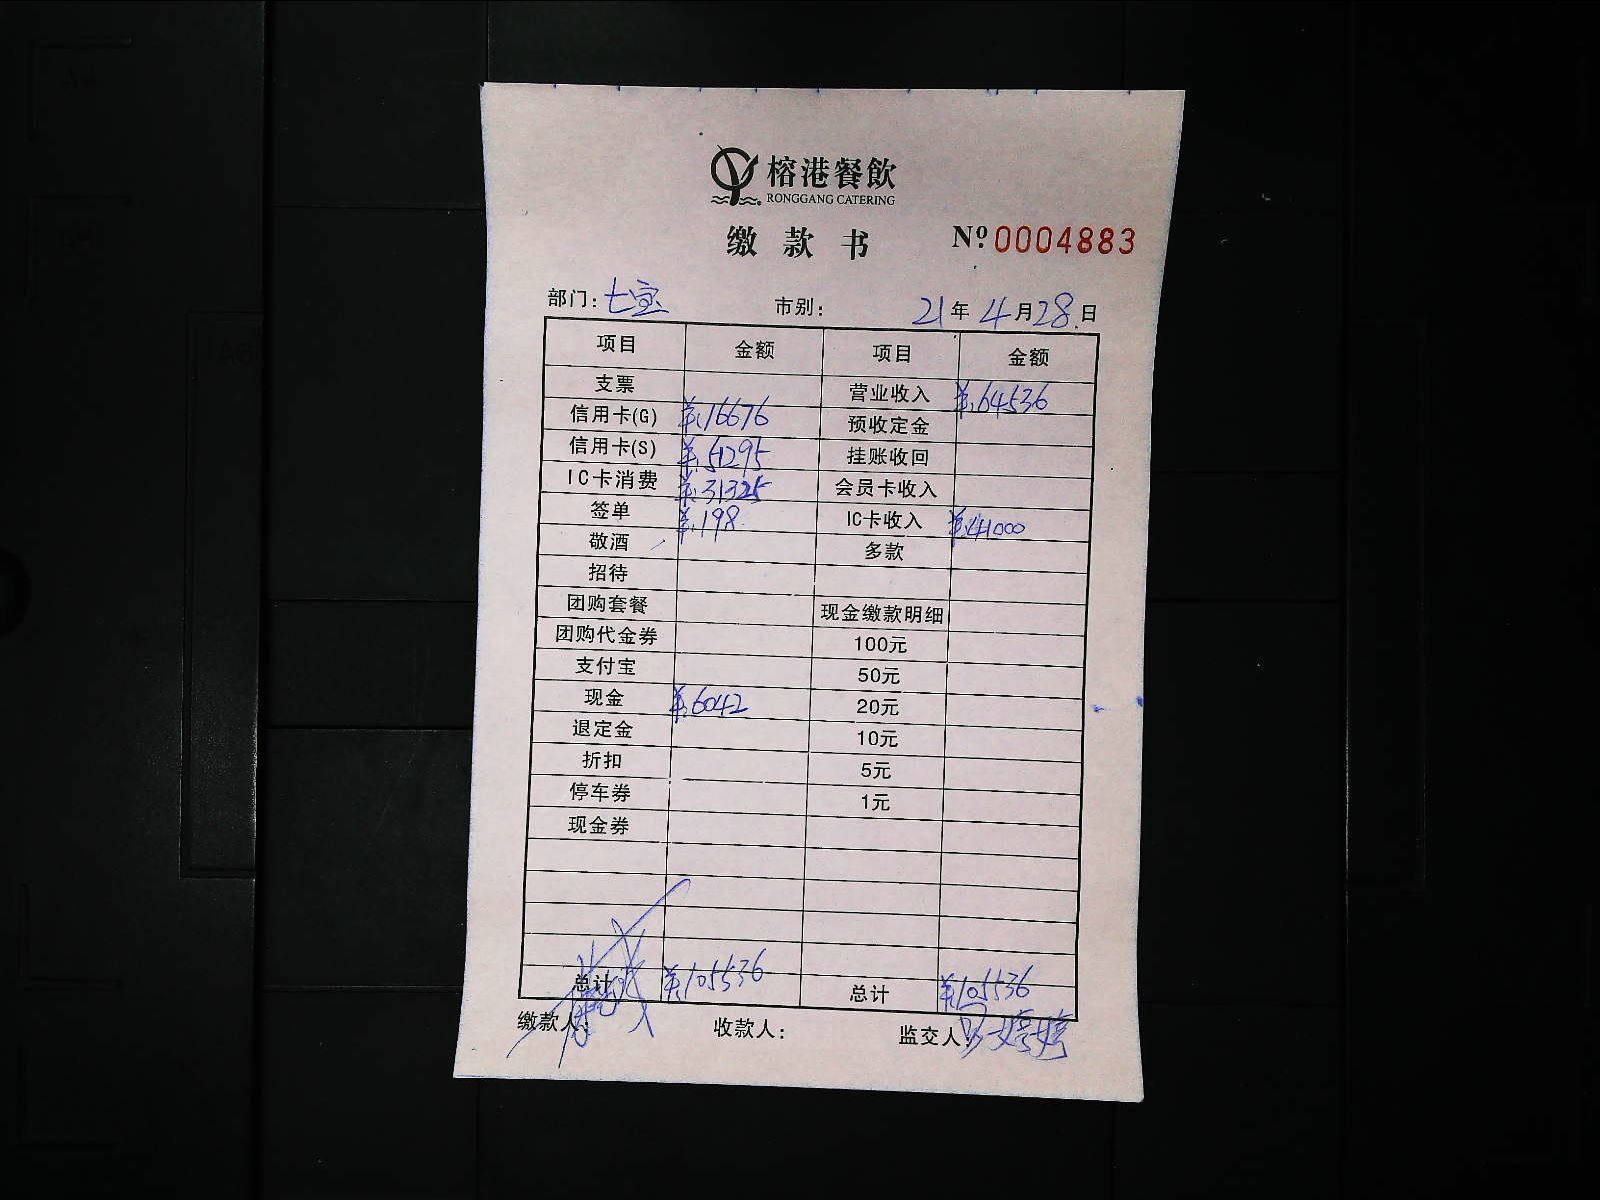 榕港餐飲
RONGGANG CATERING
缴款书 №0004883
部门：七宝 市别： 21年4月28日
项目 金额 项目 金额
支票 营业收入 ¥64536
信用卡(G) ¥16676 预收定金
信用卡(S) ¥51295 挂账收回
IC卡消费 ¥31325 会员卡收入
签单 ¥198 IC卡收入 ¥41000
敬酒 多款
招待
团购套餐 现金缴款明细
团购代金券 100元
支付宝 50元
现金 ¥6042 20元
退定金 10元
折扣 5元
停车券 1元
现金券
总计 ¥105536 总计 ¥105536
缴款人： 收款人： 监交人：